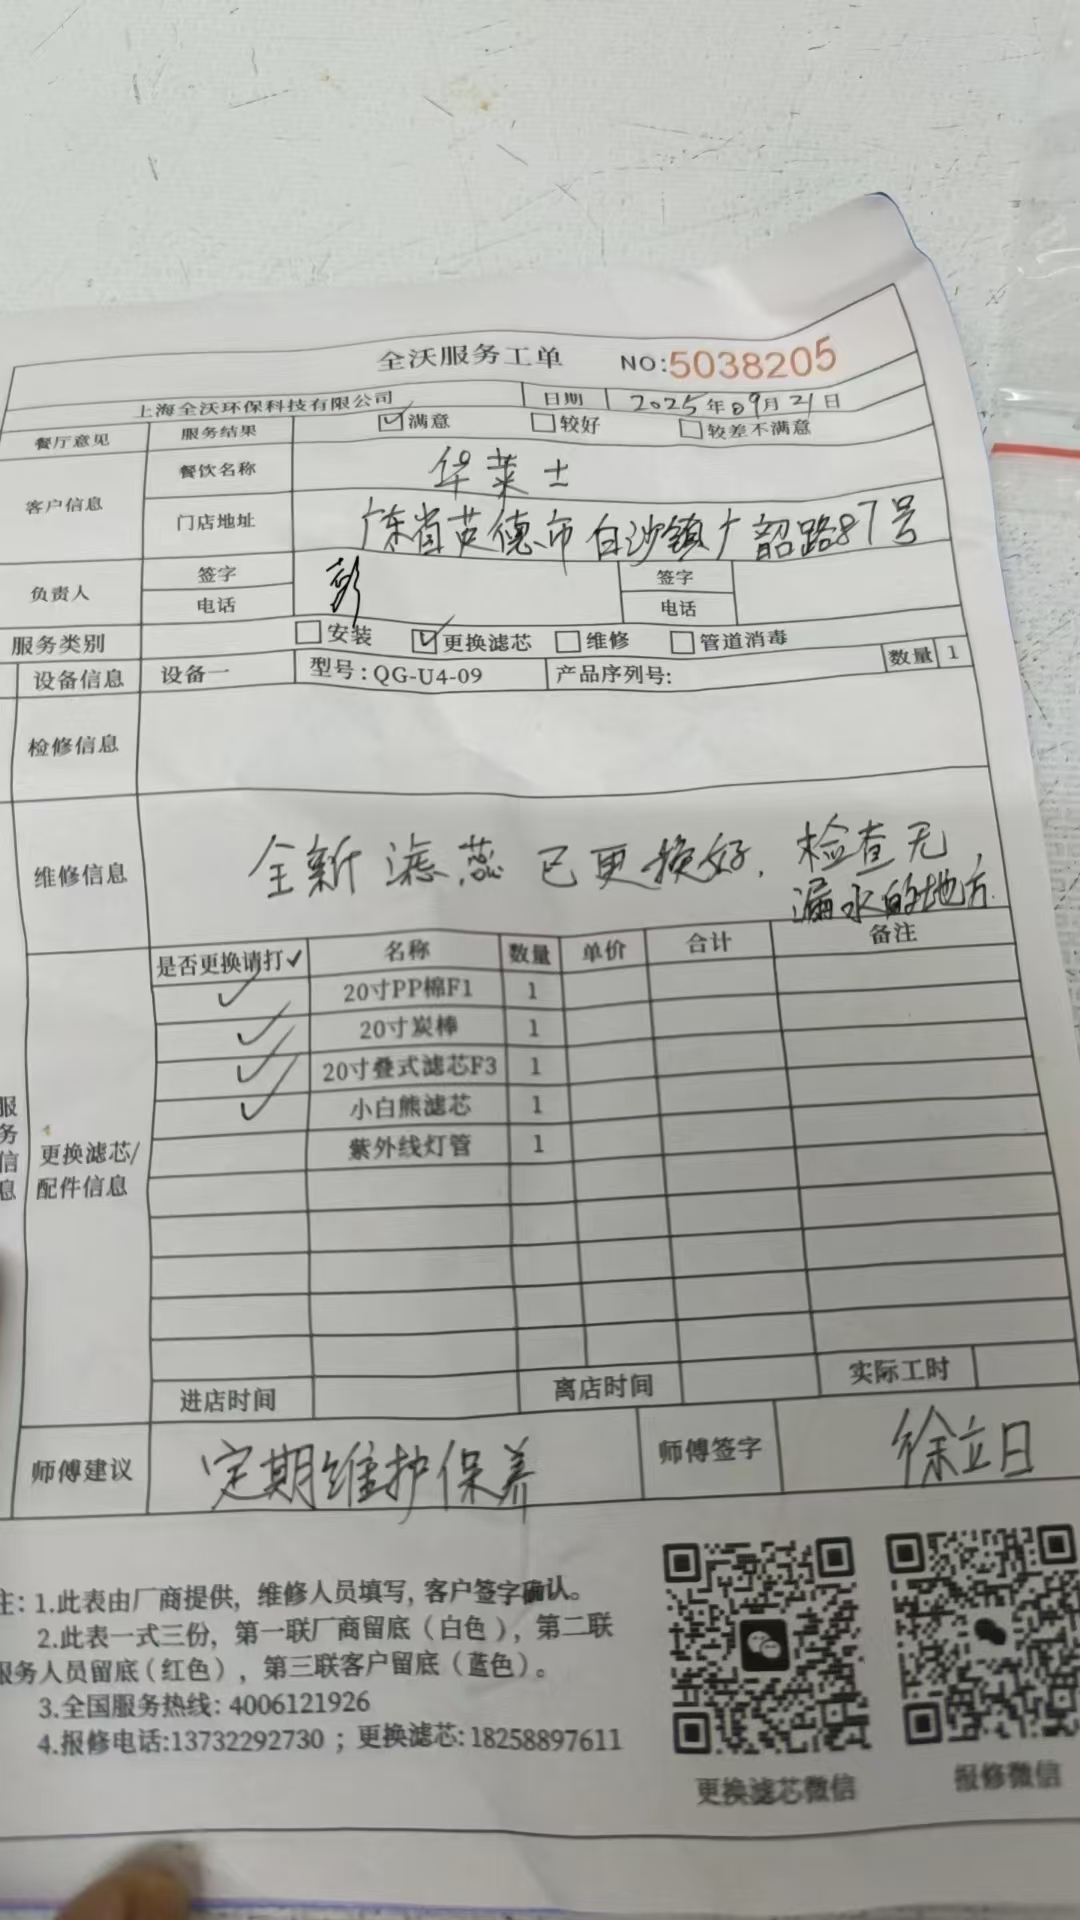 全沃服务工单 NO:5038205
上海全沃环保科技有限公司 日期 2025年09月21日
餐厅意见 服务结果 ☑满意 □较好 □较差不满意
客户信息 餐饮名称 华莱士
门店地址 广东省英德市白沙镇广韶路87号
负责人 签字 彭 签字
电话 电话
服务类别 □安装 ☑更换滤芯 □维修 □管道消毒
设备信息 设备一 型号:QG-U4-09 产品序列号: 数量 1
检修信息
维修信息 全新滤蕊已更换好.检查无
漏水的地方.
服务信息
更换滤芯/
配件信息
是否更换请打✓ 名称 数量 单价 合计 备注
✓ 20寸PP棉F1 1
✓ 20寸炭棒 1
✓ 20寸叠式滤芯F3 1
✓ 小白熊滤芯 1
紫外线灯管 1
进店时间 离店时间 实际工时
师傅建议 定期维护保养 师傅签字 徐立日
注:1.此表由厂商提供,维修人员填写,客户签字确认。
2.此表一式三份,第一联厂商留底(白色),第二联
服务人员留底(红色),第三联客户留底(蓝色)。
3.全国服务热线:4006121926
4.报修电话:13732292730;更换滤芯:18258897611
更换滤芯微信 报修微信